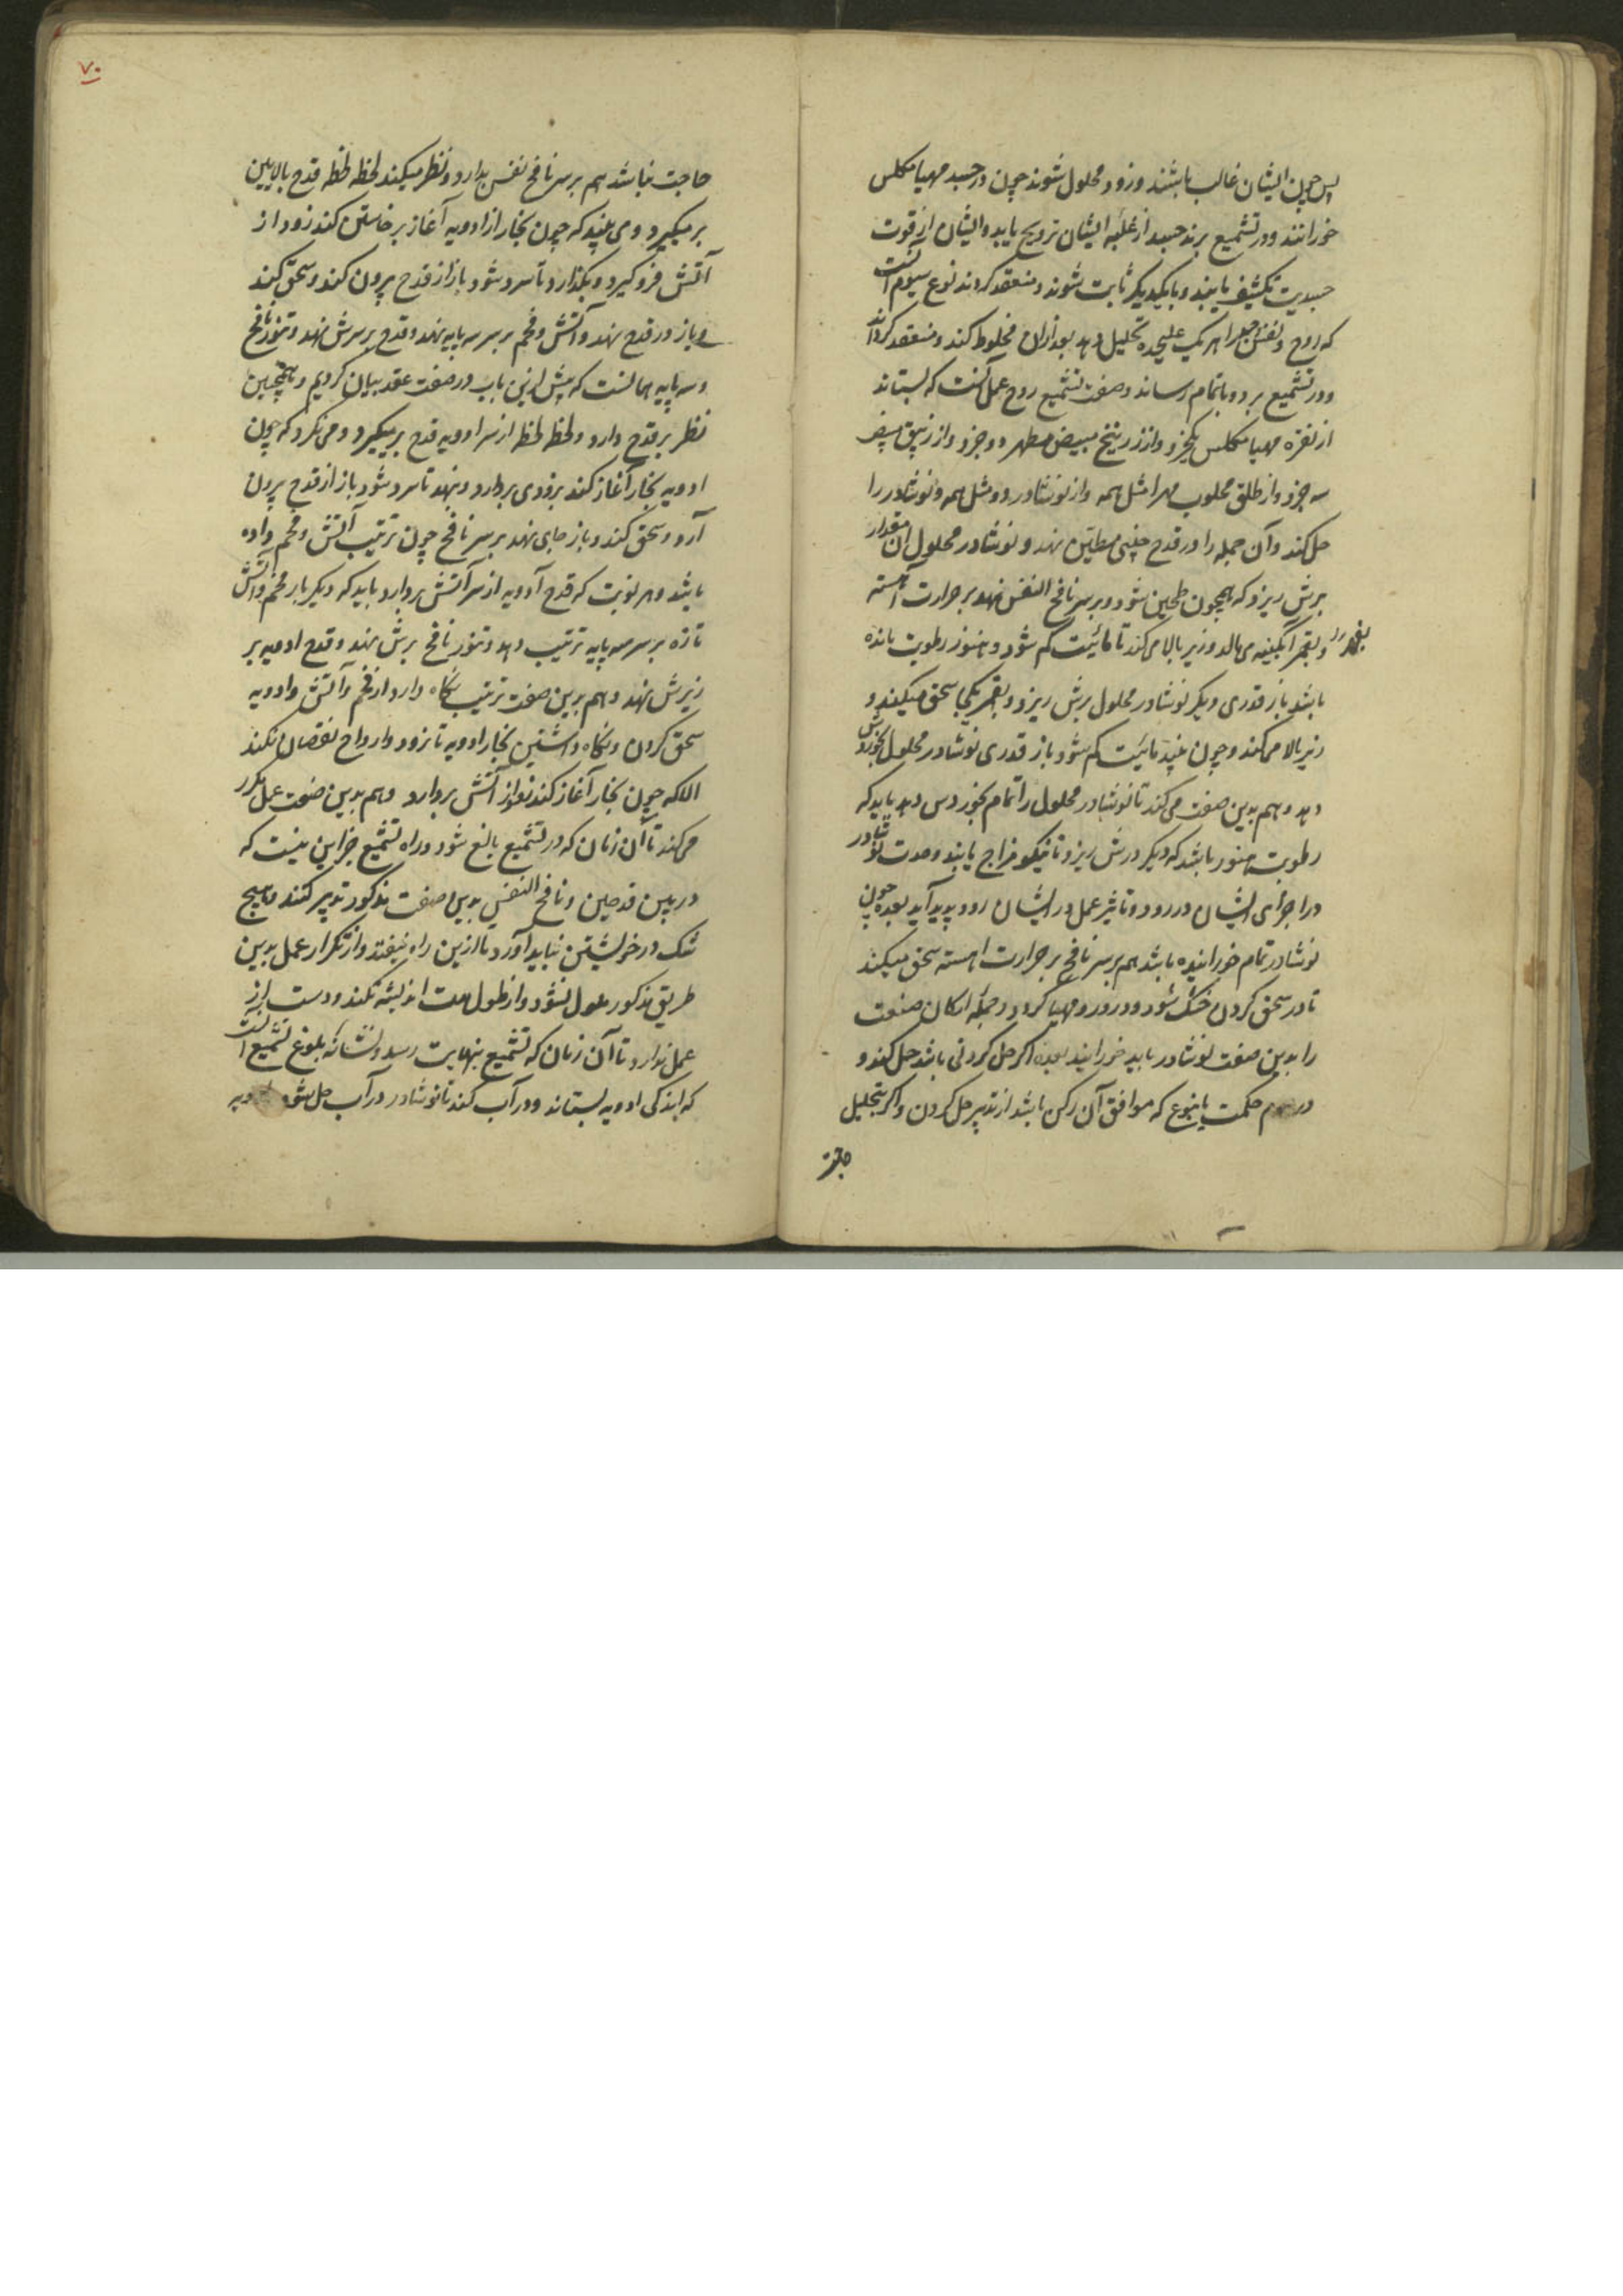 پس چون ایشان غالب باشند و زود محلول شوند چون در جسد مهیا مکلس
خورانند و در تشمیع برند جسد از غلبه ایشان ترویح یابد و ایشان از قوت
جسدیت تکثیف یابند و بایکدیکر ثابت شوند و منعقد کردند نوع سیوم آنست
که روح و نفس و جسد را هر یک علیحده تحلیل دهد بعد ازان مخلوط کند و منعقد کرداند
و در تشمیع برد و باتمام رساند و صفت تشمیع روح عمل آنست که بستاند
از نقره مهیا مکلس یکجزو و از زرنیخ مبیض مطهر دو جزو و از زیبق مبیض
سه جزو و از طلق محلوب مهرا مثل همه و از نوشادر دو مثل همه و نوشادر را
حل کند و آن جمله را در قدح چینی مطین نهد و نوشادر محلول آن مقدار
برش ریزد که همچون طحین شود و بر سر نافخ النفس نهد بر حرارت آهسته
و بقهر آبکینه می مالد و زیر بالا می کند تا مائیت کم شود و هنوز رطوبت مانده
بقهر
باشد باز قدری دیکر نوشادر محلول برش ریزد و بقهر یکجا سحق میکند و
زیر بالا می کند و چون بیند مائیت کم شود باز قدری نوشادر محلول بخوردش
دهد و هم بدین صفت می کند تا نوشادر محلول را تمام بخوردس دهد باید که
رطوبت هنوز باشد که دیکر درش ریزد تا نیکو مزاج یابند و حدت نوشادر
در اجزای ایشان در رود و تاثیر عمل در ایشان رود پدید آید بعده چون
نوشادر تمام خورانیده باشد هم بر سر نافخ بر حرارت اهسته سحق میکند
تا در سحق کردن خشک شود و در رود و مهیا کردد و جمله ارکان صنعت
را بدین صفت نوشادر باید خورانید بعده اکر حل کردنی باشد حل کند و
در حکمت یا بنوع که موافق آن رکن باشد از تدبیر حل کردن و اکر بتحلیل
حاجت
۷۰
حاجت نباشد هم بر سر نافخ نفس بدارد و نظر میکند لحظه لحظه قدح بالایین
بر میکیرد و می بیند که چون بخار از ادویه آغاز برخاستن کند زود از
آتش فرو کیرد و بکذارد تا سرد شود باز از قدح بیرون کند و سحق کند
و باز در قدح نهد و آتش و فحم بر سر سه پایه نهد و قدح بر سرش نهد و تنور نافخ
و سه پایه همانست که پیش ازین باب در صفت عقد بیان کردیم و همچنین
نظر بر قدح دارد و لحظه لحظه از سر ادویه قدح بر میکیرد و می نکرد که چون
ادویه بخار آغاز کند بزودی بردارد و بنهد تا سرد شود باز از قدح بیرون
آرد و سحق کند و باز جای نهد بر سر نافخ چون ترتیب آتش و فحم داده
باشد و هر نوبت که قدح ادویه از سر آتش بردارد باید که دیکر بار فحم و آتش
تازه بر سر سه پایه ترتیب دهد و تنور نافخ برش نهد و قدح ادویه بر
زیرش نهد و هم برین صفت ترتیب نکاه دارد از فحم و آتش و ادویه
سحق کردن و نکاه داشتین بخار ادویه تا نرود و ارواح نقصان نکند
الا که چون بخار آغاز کند زود از آتش بردارد و هم بدین صفت عمل مکرر
می کند تا آن زمان که در تشمیع بالغ شود و راه تشمیع جز این نیست که
در بین قدحین و نافخ النفس بدین صفت مذکور تدبیر کنند و هیچ
شک در خویشتن نباید آورد تا ازین راه نیفتد و از تکرار عمل بدین
طریق مذکور ملول نشود و از طول مدت اندیشه نکند و دست از
عمل ندارد تا آن زمان که تشمیع بنهایت رسد و نشانه بلوغ تشمیع آنست
که اندکی ادویه بستاند و در آب کند تا نوشادر در آب حل شود